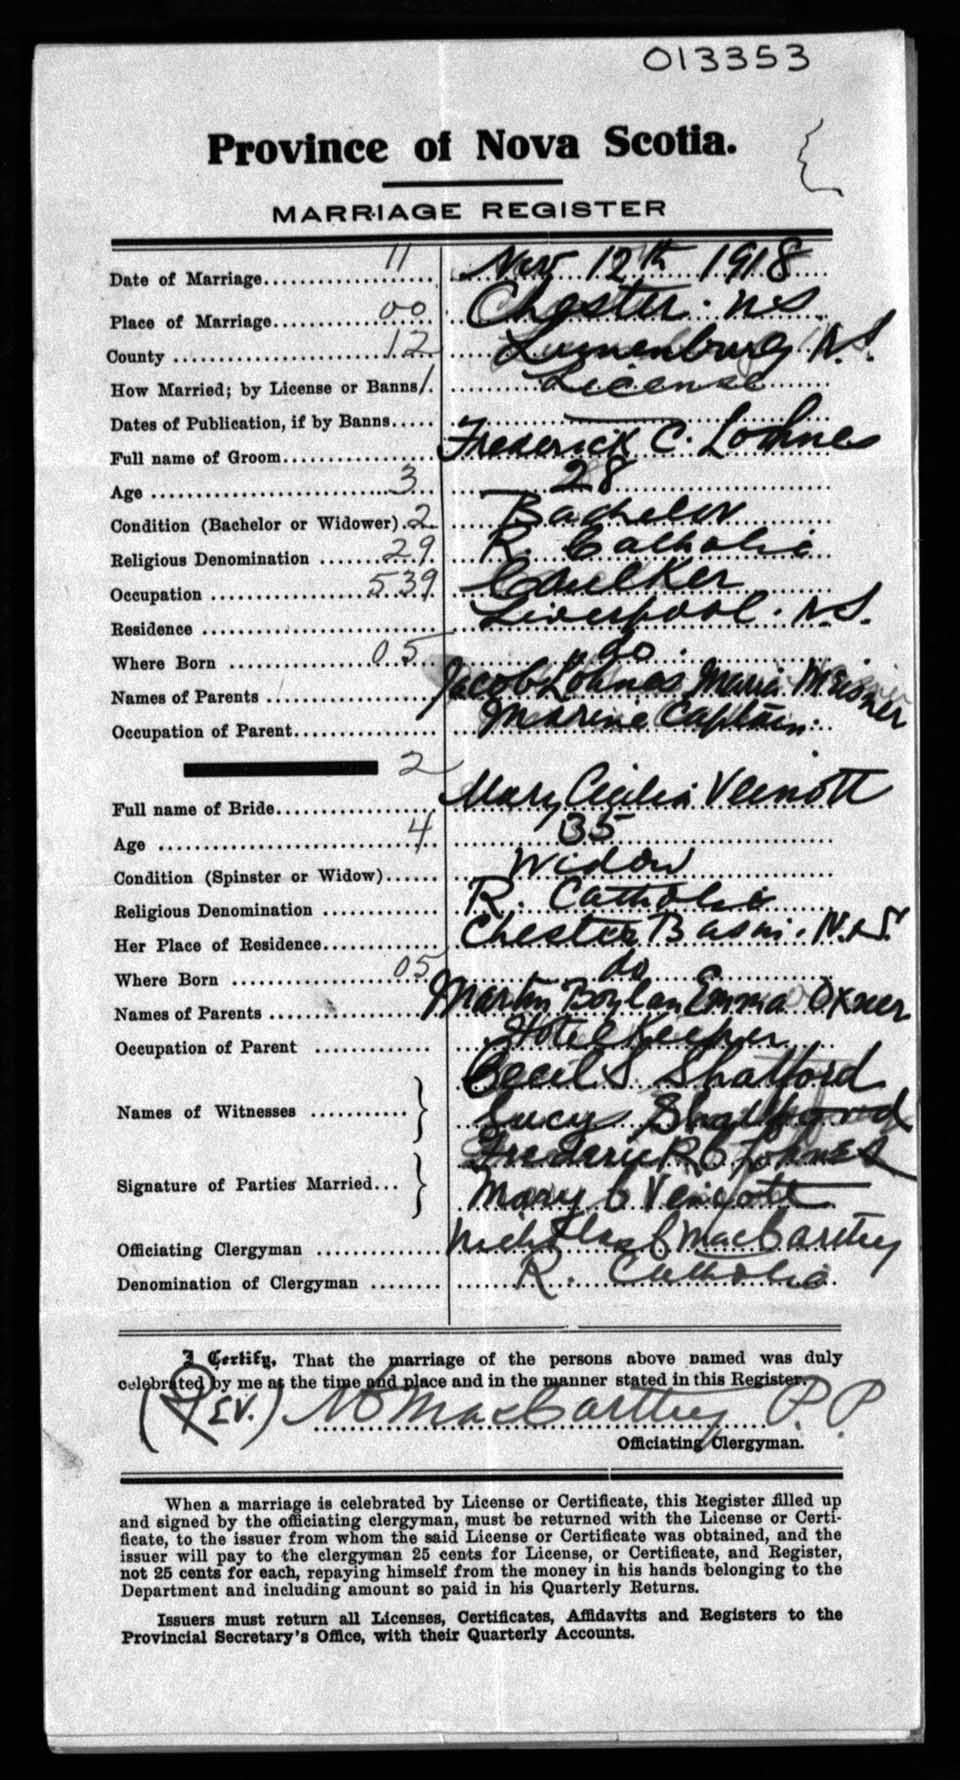 013353
Province of Nova Scotia.
MARRIAGE REGISTER
Date of Marriage 11 Nov 12th 1918
Place of Marriage 00 Chester. N.S.
County 12 Lunenburg N.S.
How Married; by License or Banns 1. License
Dates of Publication, if by Banns ——
Full name of Groom Frederick C. Lohnes
Age 3 28
Condition (Bachelor or Widower) 2 Bachelor
Religious Denomination 29 R. Catholic
Occupation 539 Caulker
Residence Liverpool. N.S.
Where Born 05 do.
Names of Parents Jacob Lohnes Maria Meisner
Occupation of Parent Marine Captain.
2
Full name of Bride Mary Cicilia Veinott
Age 4 35
Condition (Spinster or Widow) Widow
Religious Denomination R. Catholic
Her Place of Residence Chester Basin. N.S.
Where Born 05 do
Names of Parents Martin Boylan Emma Oxner
Occupation of Parent Hotel Keeper
Names of Witnesses Cecil S. Shatford
Lucy Shatford
Signature of Parties Married Frederic C Lohnes
Mary C Veinott
Officiating Clergyman Nicholas C MacCarthy
Denomination of Clergyman R. Catholic
I Certify, That the marriage of the persons above named was duly
celebrated by me at the time and place and in the manner stated in this Register.
(REV.) N C MacCarthy P.P.
Officiating Clergyman.
When a marriage is celebrated by License or Certificate, this Register filled up
and signed by the officiating clergyman, must be returned with the License or Certi-
ficate, to the issuer from whom the said License or Certificate was obtained, and the
issuer will pay to the clergyman 25 cents for License, or Certificate, and Register,
not 25 cents for each, repaying himself from the money in his hands belonging to the
Department and including amount so paid in his Quarterly Returns.
Issuers must return all Licenses, Certificates, Affidavits and Registers to the
Provincial Secretary's Office, with their Quarterly Accounts.